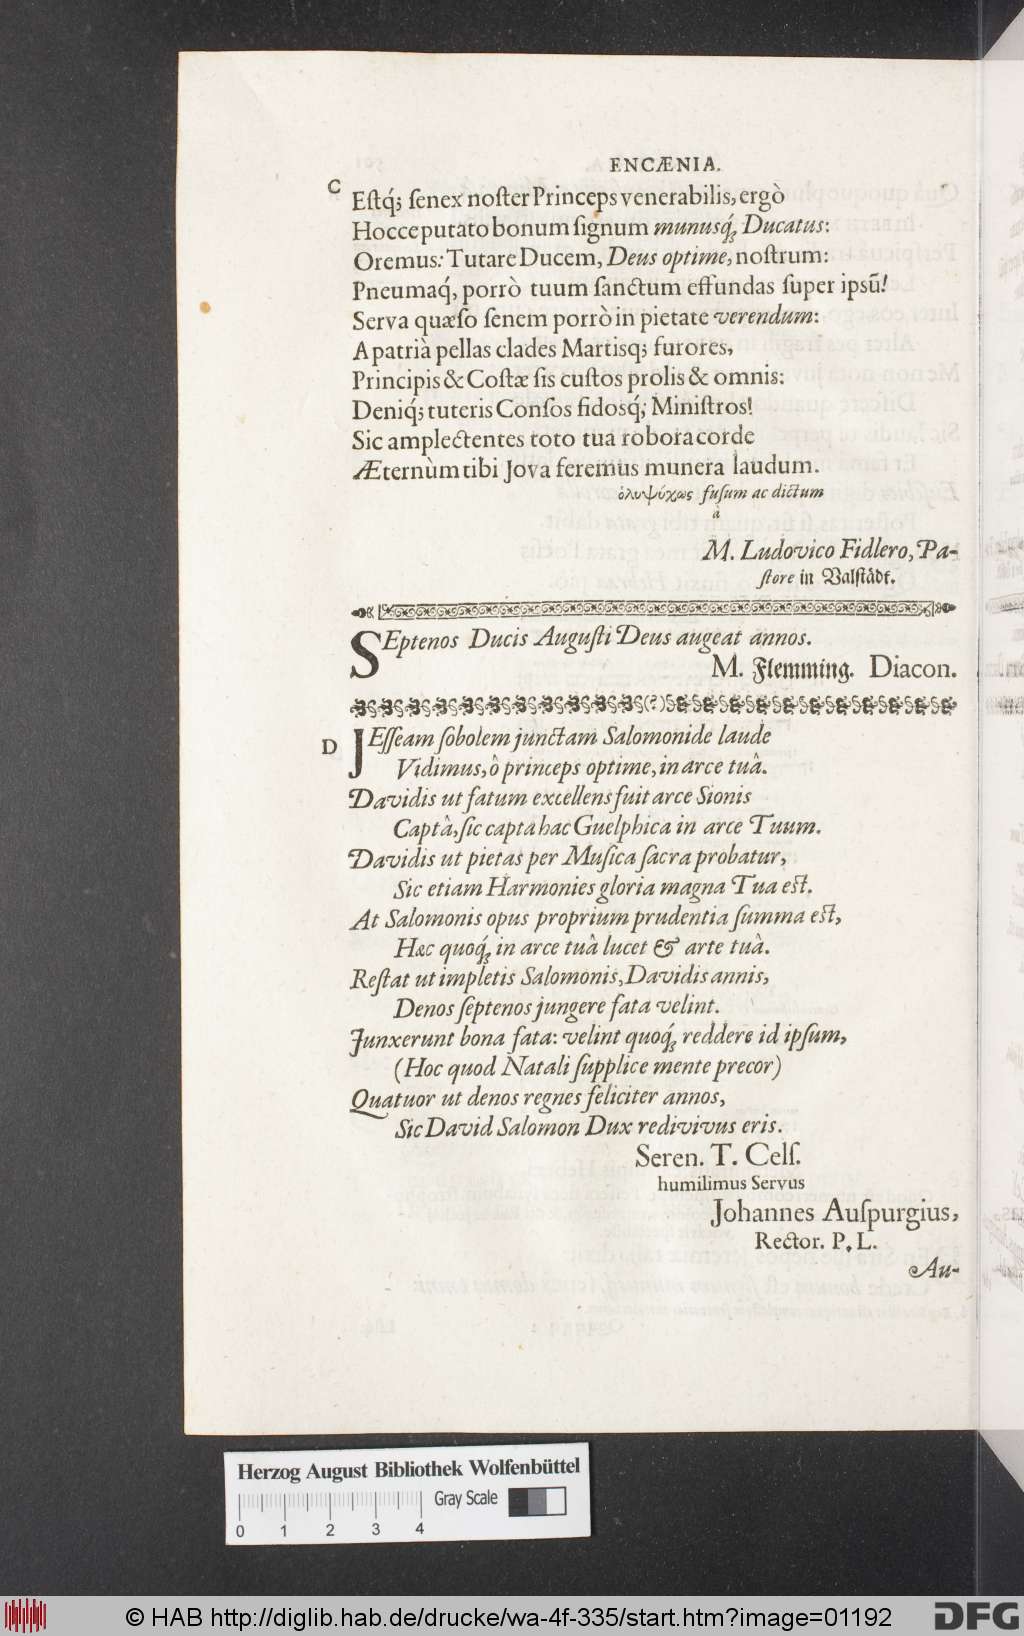 ENCÆNIA.
C
Eſtq́; ſenex noſter Princeps venerabilis, ergò
Hocce putato bonum ſignum munusq́; Ducatus:
Oremus: Tutare Ducem, Deus optime, noſtrum:
Pneumaq́, porrò tuum ſanctum effundas ſuper ipsū!
Serva quæſo ſenem porrò in pietate verendum:
A patrià pellas clades Martisq; furores,
Principis & Coſtæ ſis cuſtos prolis & omnis:
Deniq́; tuteris Conſos fidosq́; Miniſtros!
Sic amplectentes toto tua robora corde
Æternùm tibi Jova feremus munera laudum.
ὁλυψύχως fuſum ac dictum
à
M. Ludovico Fidlero, Pa-
ſtore in Valſtådt.
SEptenos Ducis Auguſti Deus augeat annos.
M. Flemming. Diacon.
(?)
D
JEſſeam ſobolem junctam Salomonide laude
Vidimus, ô princeps optime, in arce tuâ.
Davidis ut fatum excellens fuit arce Sionis
Captâ, ſic capta hac Guelphica in arce Tuum.
Davidis ut pietas per Muſica ſacra probatur,
Sic etiam Harmonies gloria magna Tua eſt.
At Salomonis opus proprium prudentia ſumma eſt,
Hæc quoq́; in arce tuâ lucet & arte tuâ.
Reſtat ut impletis Salomonis, Davidis annis,
Denos ſeptenos jungere fata velint.
Junxerunt bona fata: velint quoq́; reddere id ipſum,
(Hoc quod Natali ſupplice mente precor)
Quatuor ut denos regnes feliciter annos,
Sic David Salomon Dux redivivus eris.
Seren. T. Celſ.
humilimus Servus
Johannes Auſpurgius,
Rector. P. L.
Au-
Herzog August Bibliothek Wolfenbüttel
Gray Scale
0 1 2 3 4
© HAB http://diglib.hab.de/drucke/wa-4f-335/start.htm?image=01192
DFG